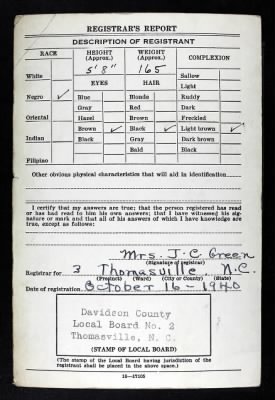 REGISTRAR'S REPORT
DESCRIPTION OF REGISTRANT
RACE HEIGHT (Approx.) WEIGHT (Approx.) COMPLEXION
5' 8" 165
White Sallow
EYES HAIR Light
Negro ✓ Blue Blonde Ruddy
Gray Red Dark
Oriental Hazel Brown Freckled
Brown ✓ Black ✓ Light brown ✓
Indian Black Gray Dark brown
Bald Black
Filipino
Other obvious physical characteristics that will aid in identification
I certify that my answers are true; that the person registered has read
or has had read to him his own answers; that I have witnessed his sig-
nature or mark and that all of his answers of which I have knowledge are
true, except as follows:
Mrs. J. C. Green
(Signature of registrar)
Registrar for 3 Thomasville, N.C.
(Precinct) (Ward) (City or County) (State)
Date of registration October 16 - 1940
Davidson County
Local Board No. 2
Thomasville, N. C.
(STAMP OF LOCAL BOARD)
(The stamp of the Local Board having jurisdiction of the
registrant shall be placed in the above space.)
16—17105